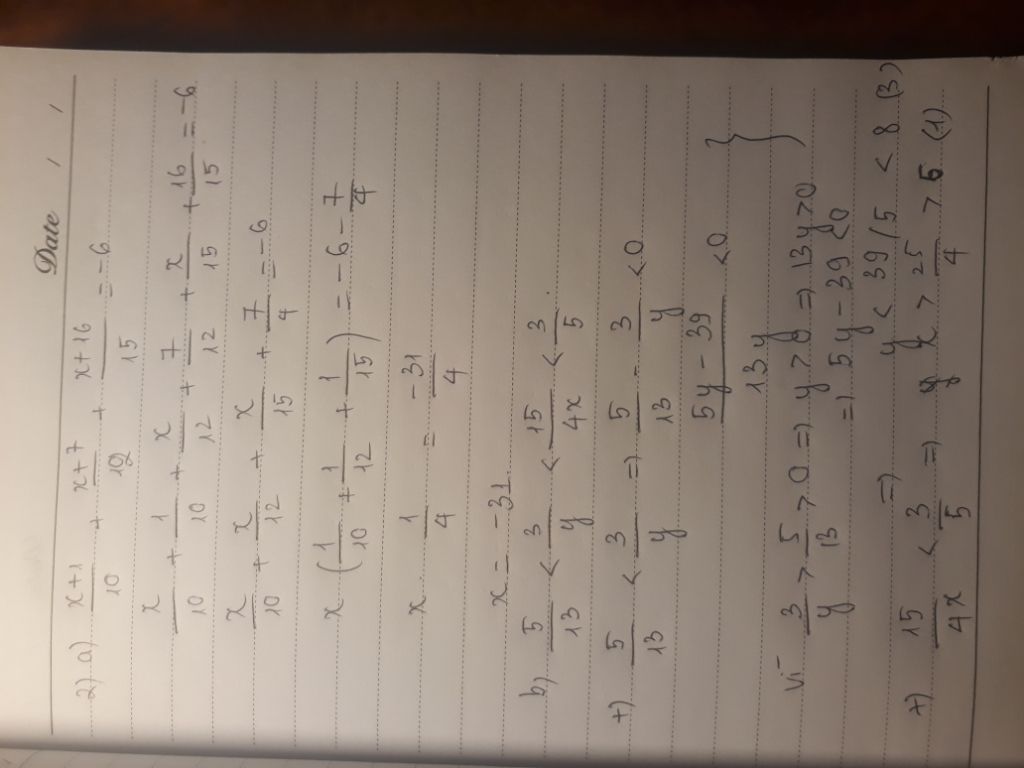 Date / /
2) a) x+1/10 + x+7/12 + x+16/15 = -6
x/10 + 1/10 + x/12 + 7/12 + x/15 + 16/15 = -6
x/10 + x/12 + x/15 + 7/4 = -6
x (1/10 + 1/12 + 1/15) = -6 - 7/4
x . 1/4 = -31/4
x = -31
b) 5/13 < 3/y < 15/4x < 3/5 .
+) 5/13 < 3/y => 5/13 - 3/y < 0
5y - 39/13y < 0
vì 3/y > 5/13 > 0 => y > 0 => 13y > 0
=> 5y - 39 < 0
=> y < 39/5 < 8 (3)
+) 15/4x < 3/5 => x > 25/4 > 6 (1)